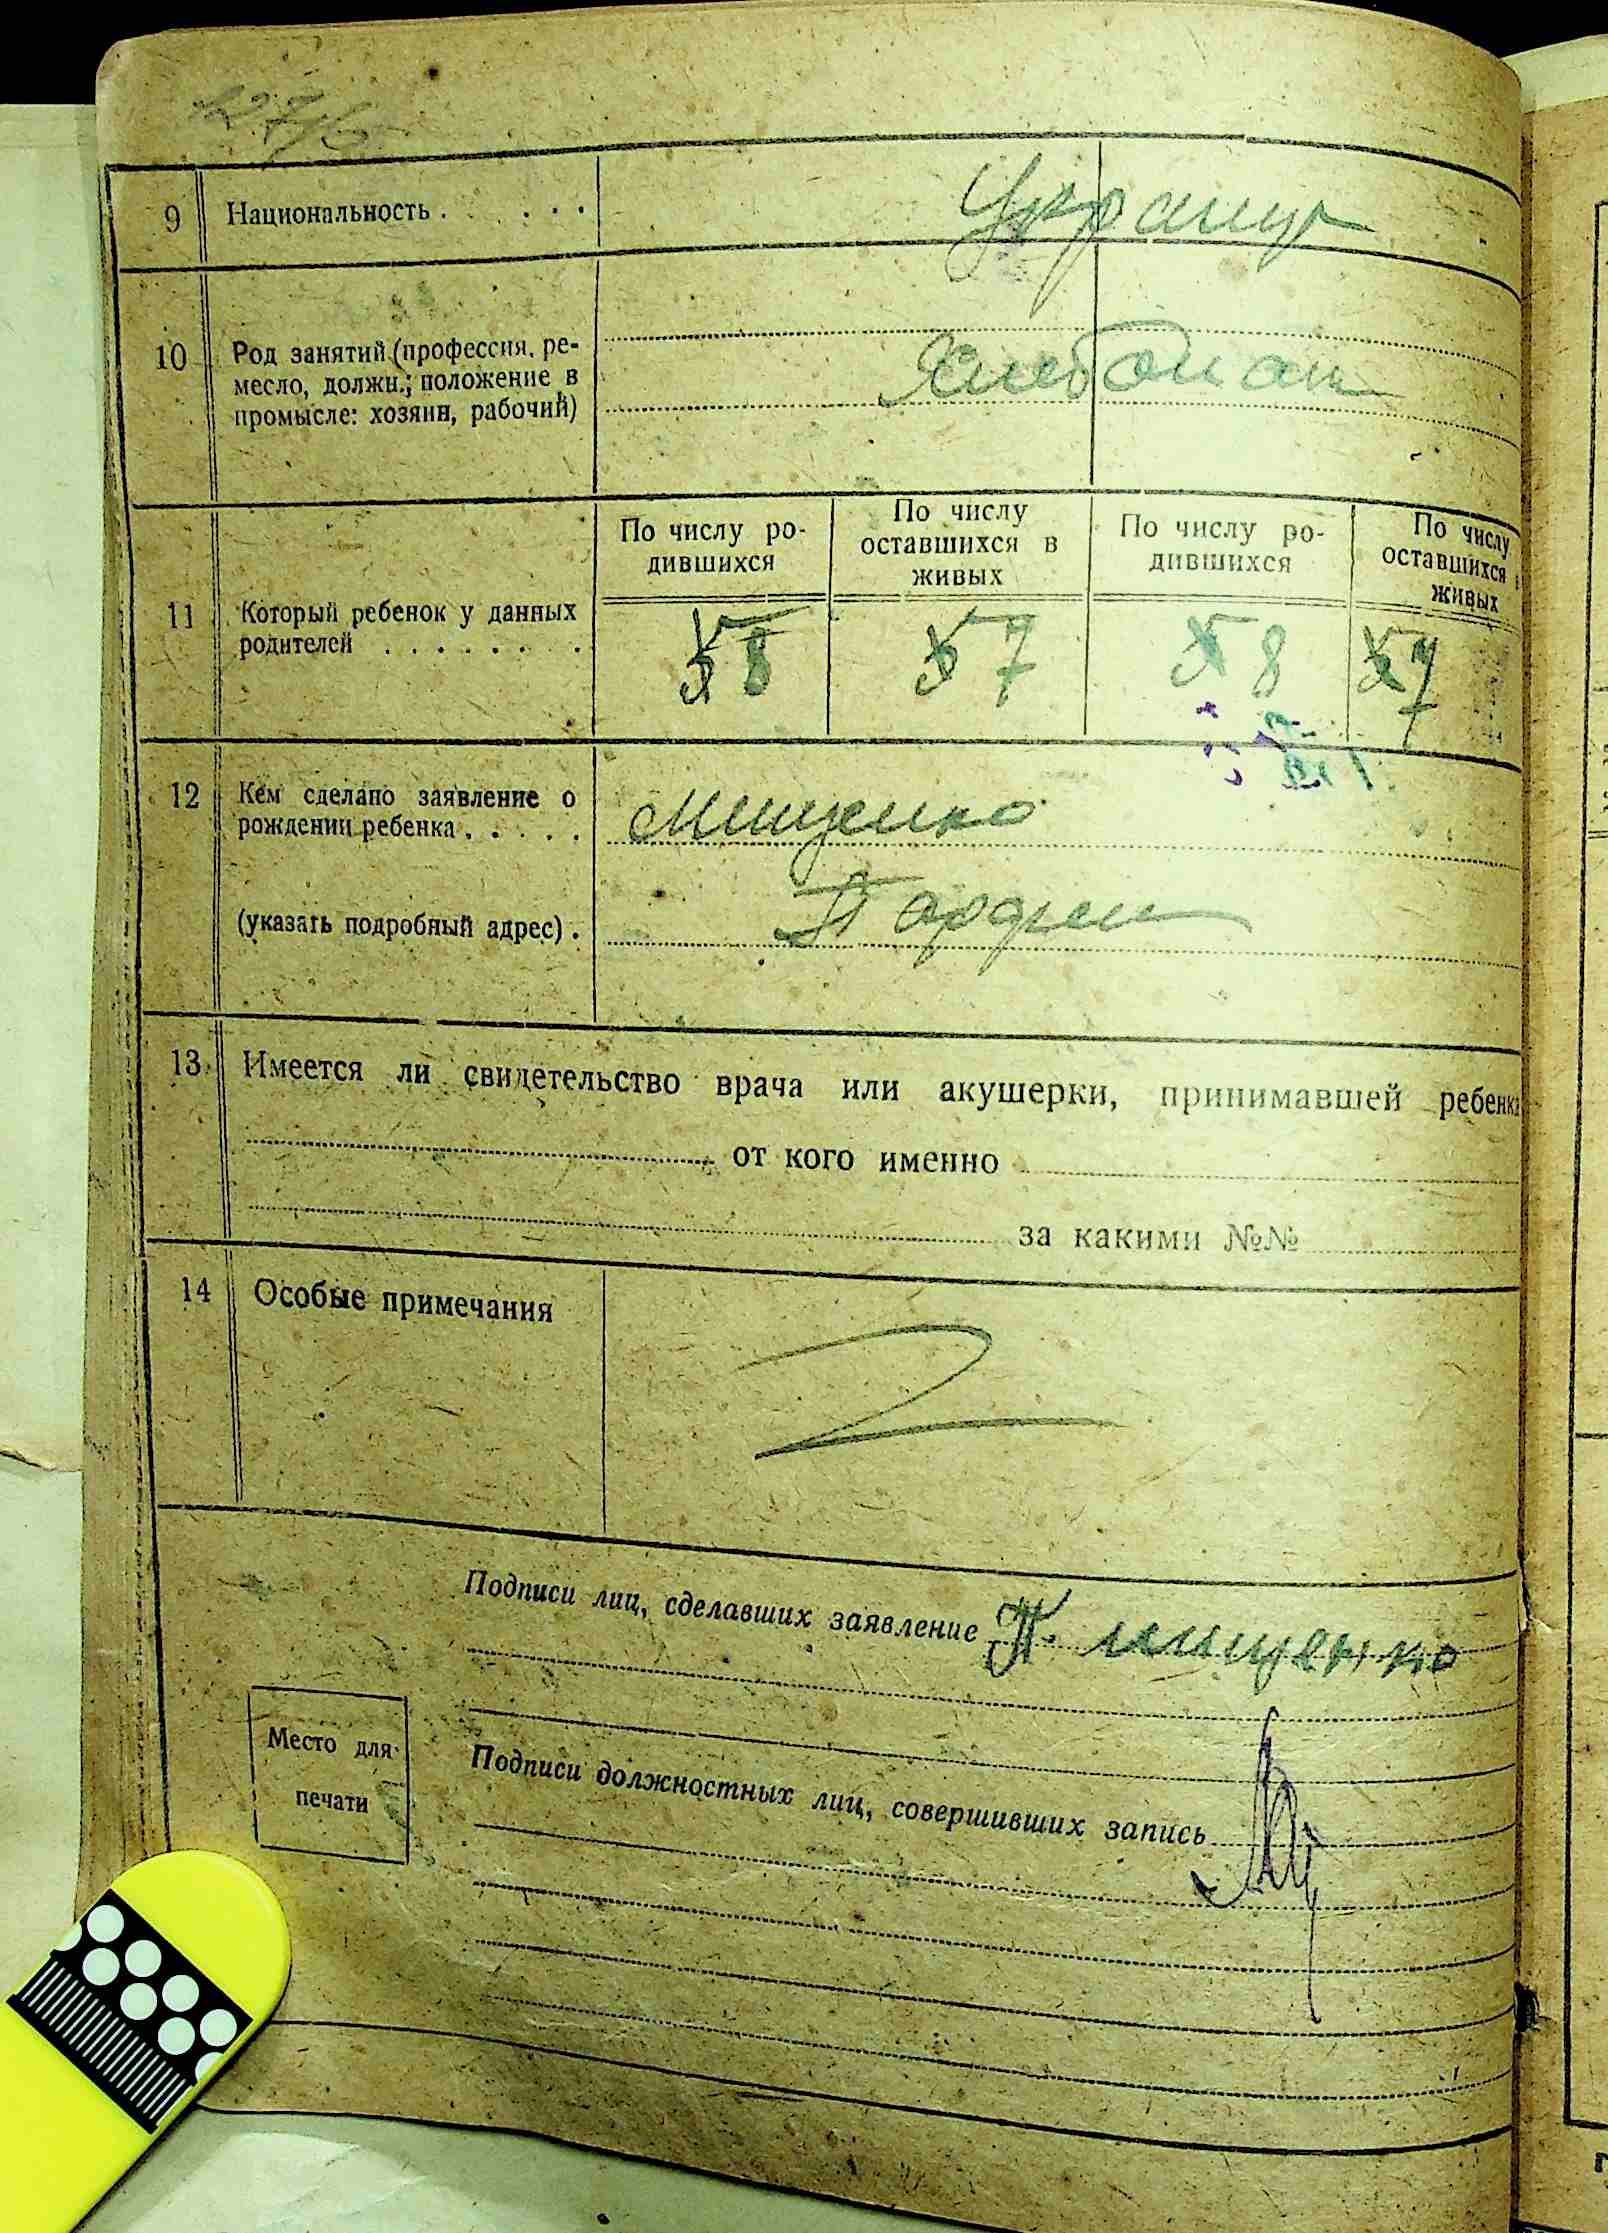 9 Национальность . . . . . Украинц
10 Род занятий (профессия, ре-
месло, должн.; положение в
промысле: хозяин, рабочий)
Хлебопаш
11 Который ребенок у данных
родителей . . . . . . . .
По числу ро-
дившихся
По числу
оставшихся в
живых
По числу ро-
дившихся
По числу
оставшихся в
живых
8 7 8 7
12 Кем сделано заявление о
рождении ребенка . . . . .
Мищенко
(указать подробный адрес) .
Парфен
13 Имеется ли свидетельство врача или акушерки, принимавшей ребенка
от кого именно
за какими №№
14 Особые примечания
Подписи лиц, сделавших заявление П. Мищенко
Место для
печати
Подписи должностных лиц, совершивших запись